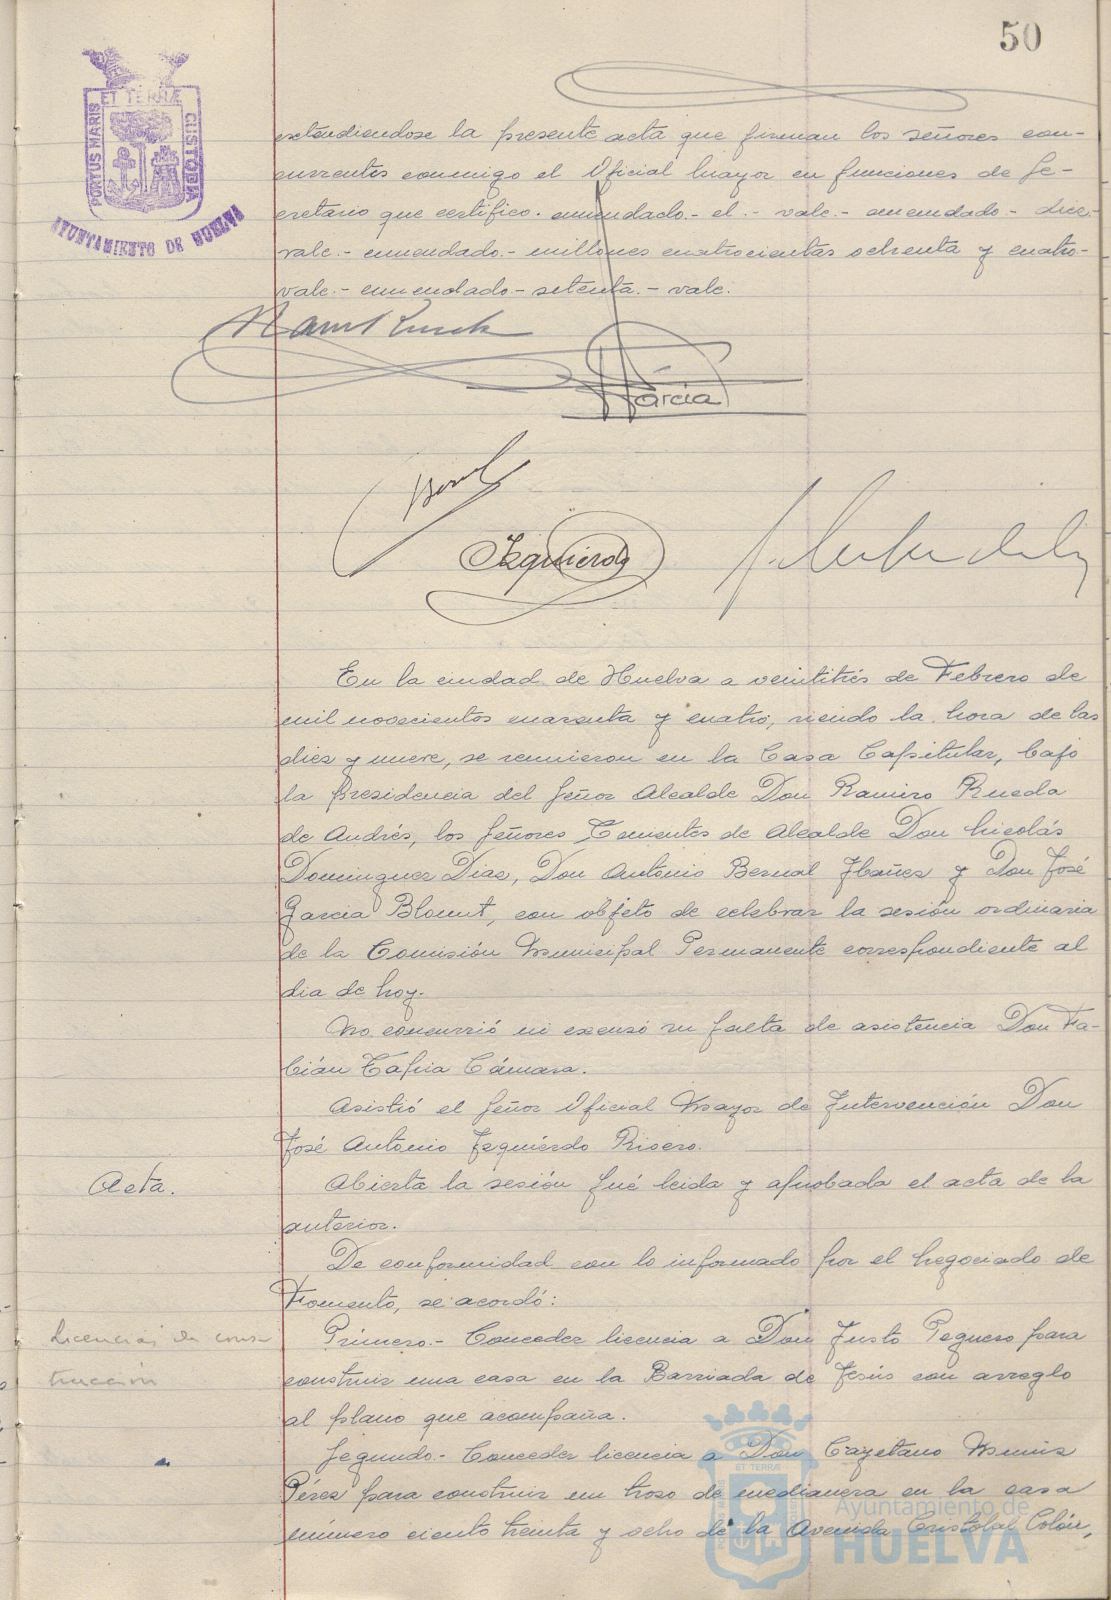 50
PORTUS MARIS ET TERRÆ CUSTODIA
AYUNTAMIENTO DE HUELVA
extendiendose la presente acta que firman los señores con-
currentes conmigo el Oficial Mayor en funciones de Se-
cretario que certifico. enmendado.- el.- vale.- enmendado.- diez-
vale.- enmendado.- millones cuatrocientas ochenta y cuatro-
vale.- enmendado.- setenta.- vale.
García
Bernal
Izquierdo
En la ciudad de Huelva a veintitrés de Febrero de
mil novecientos cuarenta y cuatro, siendo la hora de las
diez y nueve, se reunieron en la Casa Capitular, bajo
la presidencia del Señor Alcalde Don Ramiro Rueda
de Andrés, los Señores Tenientes de Alcalde Don Nicolás
Dominguez Diaz, Don Antonio Bernal Ibañez y Don José
Garcia Blount, con objeto de celebrar la sesión ordinaria
de la Comisión Municipal Permanente correspondiente al
dia de hoy.
No concurrió ni excusó su falta de asistencia Don Fa-
bián Tapia Cámara.
Asistió el Señor Oficial Mayor de Intervención Don
José Antonio Izquierdo Rivero.
Acta.
Abierta la sesión fué leida y aprobada el acta de la
anterior.
De conformidad con lo informado por el Negociado de
Fomento, se acordó:
Licencias de cons-
trucción
Primero.- Conceder licencia a Don Justo Peguero para
construir una casa en la Barriada de Jesús con arreglo
al plano que acompaña.
Segundo.- Conceder licencia a Don Cayetano Muniz
Pérez para construir un trozo de medianera en la casa
número ciento treinta y ocho de la Avenida Cristóbal Colón,
Ayuntamiento de
HUELVA